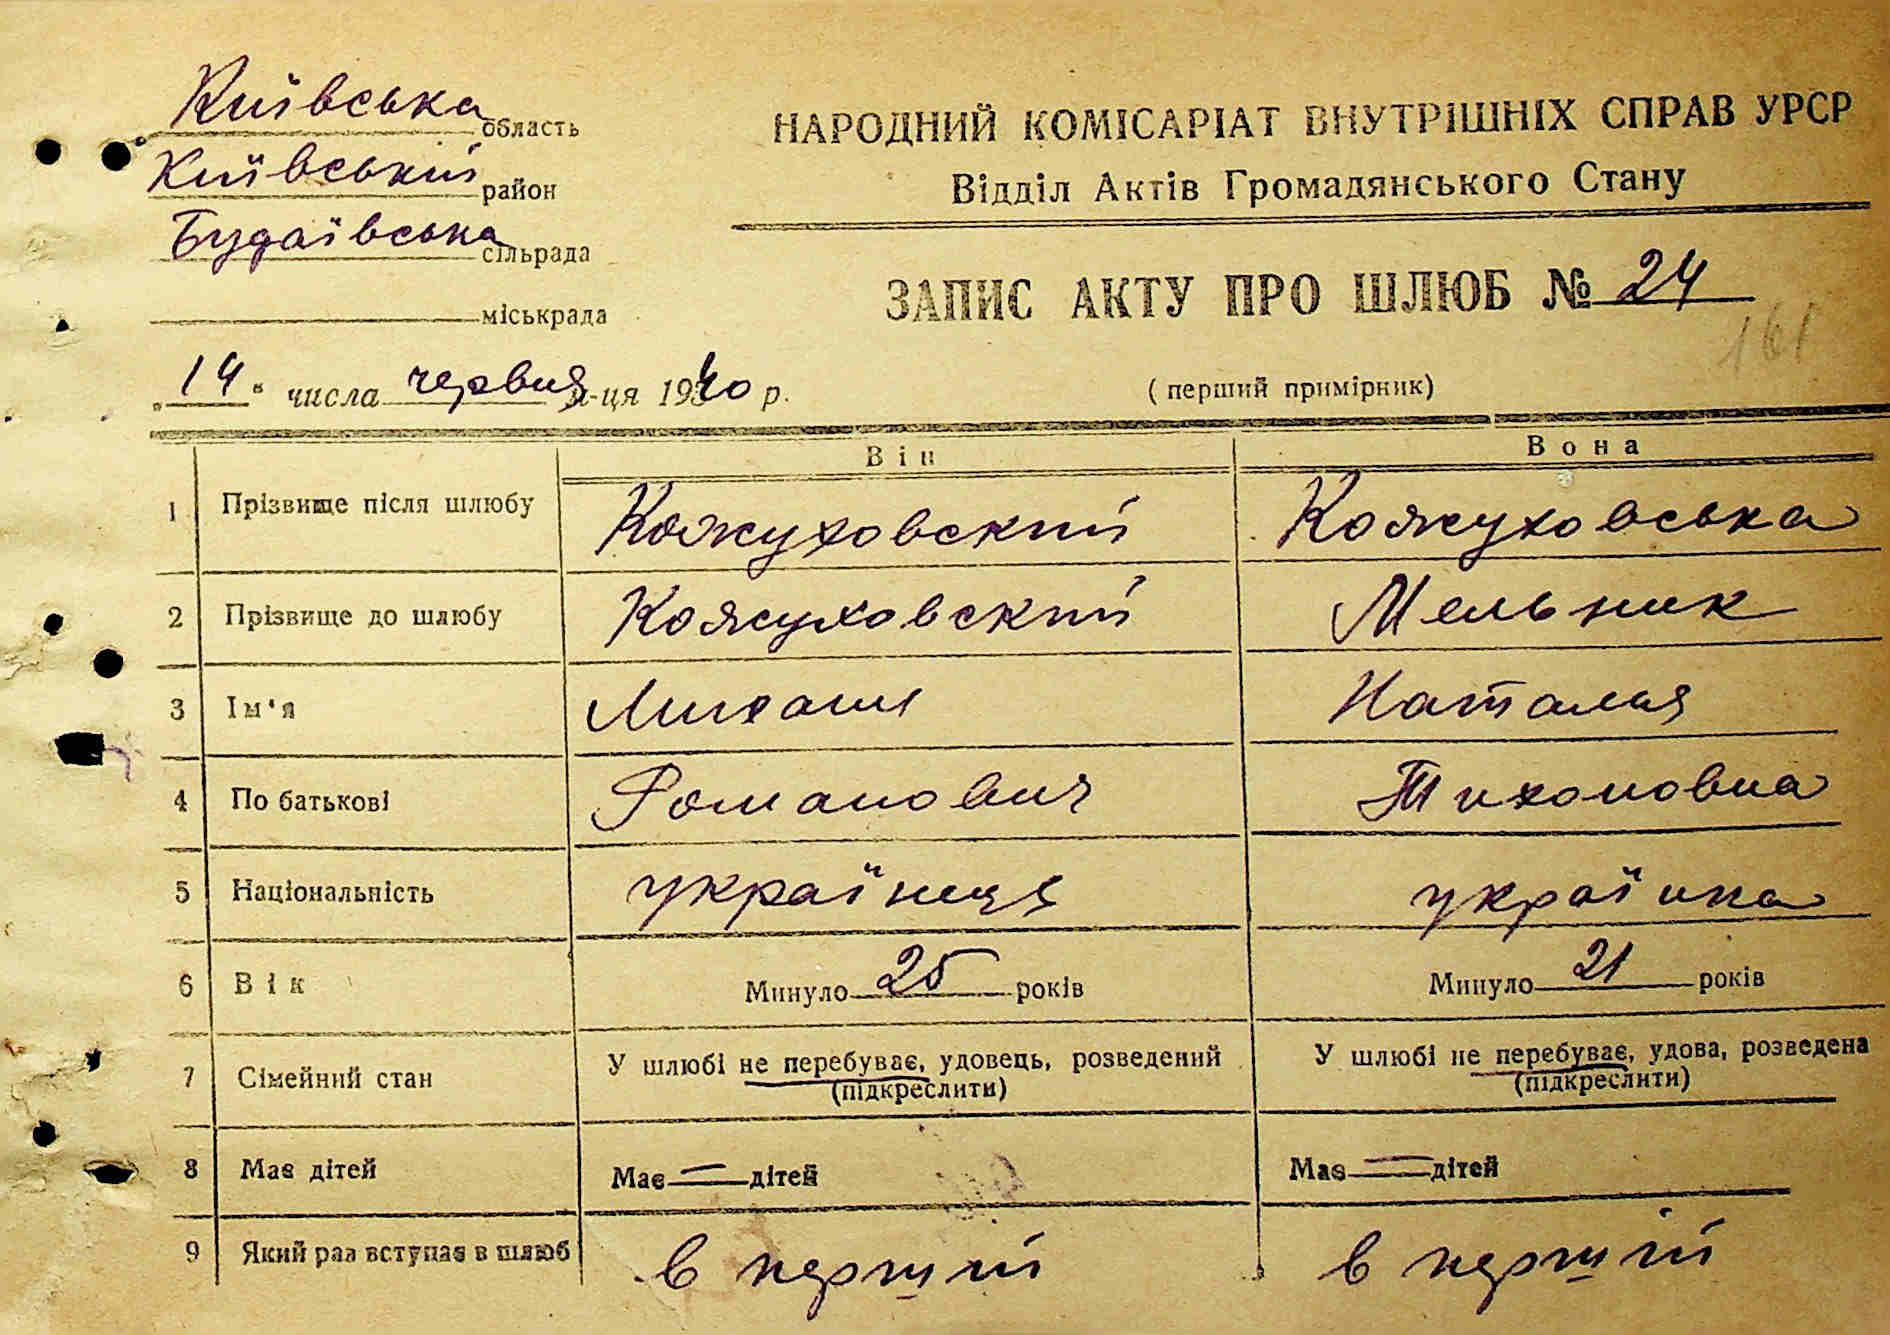 Київська область
Київський район
Будаївська сільрада
міськрада
НАРОДНИЙ КОМІСАРІАТ ВНУТРІШНІХ СПРАВ УРСР
Відділ Актів Громадянського Стану
ЗАПИС АКТУ ПРО ШЛЮБ № 24
161
"14" числа червня м-ця 1940 р.
(перший примірник)
Він Вона
1 Прізвище після шлюбу Кожуховский Кожуховська
2 Прізвище до шлюбу Кожуховский Мельник
3 Ім'я Михаил Наталія
4 По батькові Романович Тихоновна
5 Національність українець українка
6 Вік Минуло 25 років Минуло 21 років
7 Сімейний стан У шлюбі не перебуває, удовець, розведений У шлюбі не перебуває, удова, розведена
(підкреслити) (підкреслити)
8 Має дітей Має — дітей Має — дітей
9 Який раз вступає в шлюб в перший в перший